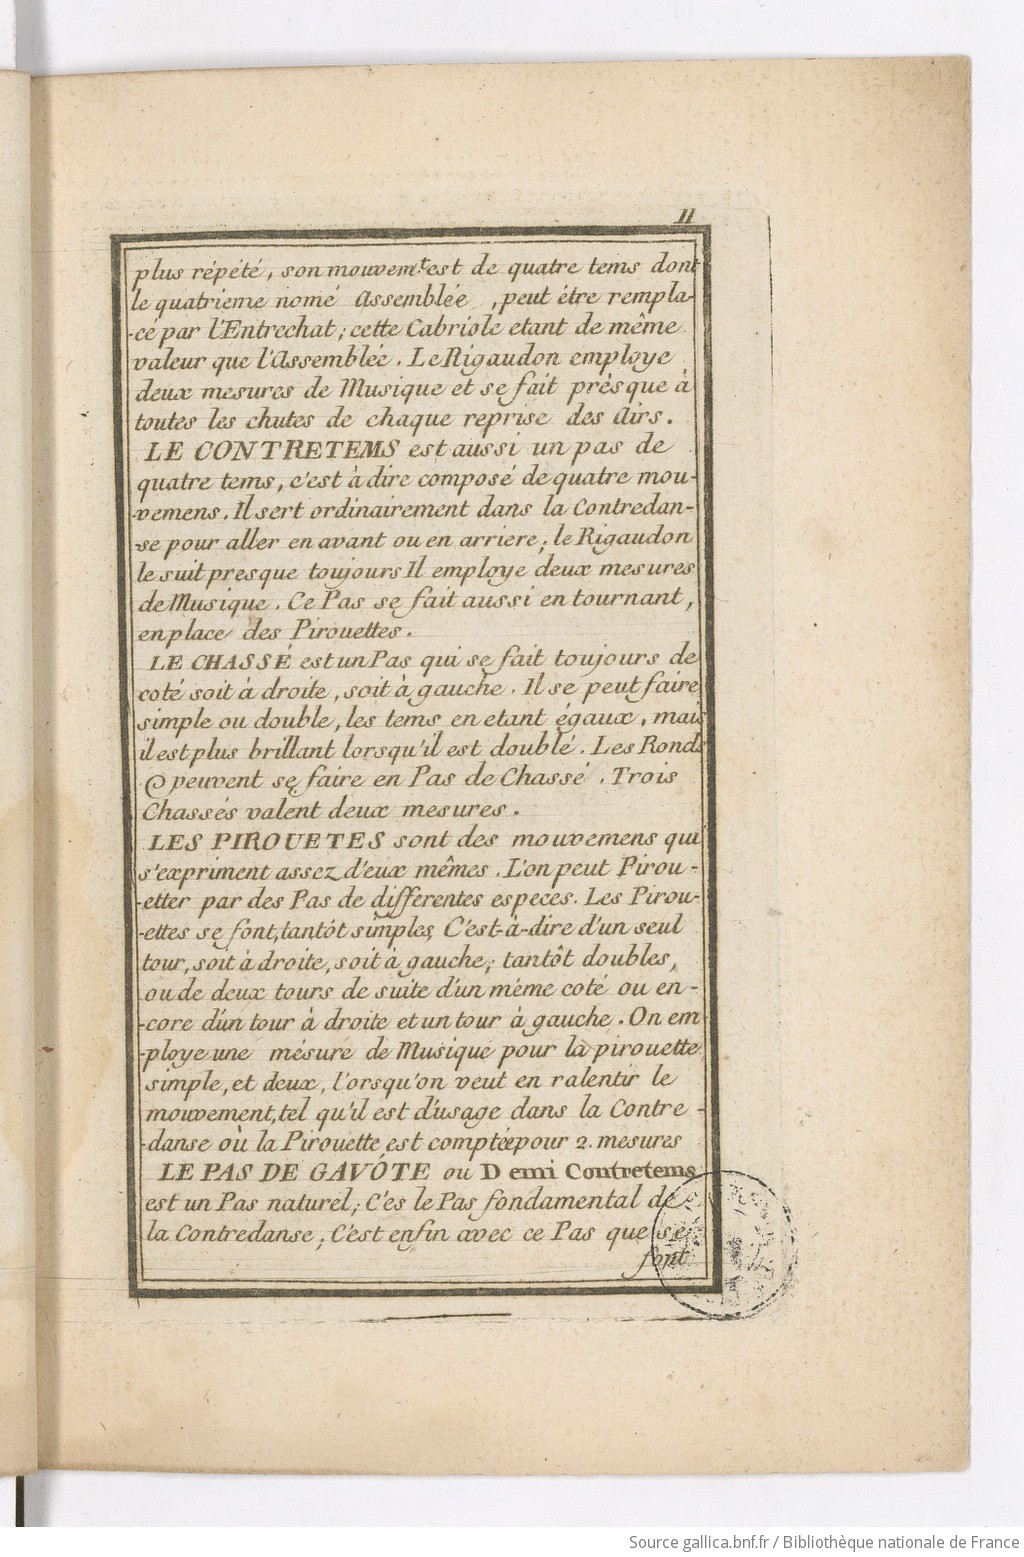 11
plus répété, son mouvemt. est de quatre tems dont
le quatrieme nomé Assemblée, peut étre rempla-
-cé par l'Entrechat; cette Cabriole etant de même
valeur que l'Assemblée. Le Rigaudon employe
deux mesures de Musique et se fait présque à
toutes les chutes de chaque reprise des Airs.
LE CONTRETEMS est aussi un pas de
quatre tems, c'est à dire composé de quatre mou-
-vemens. Il sert ordinairement dans la Contredan-
-se pour aller en avant ou en arriere; le Rigaudon
le suit presque toujours Il employe deux mesures
de Musique. Ce Pas se fait aussi en tournant,
en place des Pirouettes.
LE CHASSÉ est un Pas qui se fait toujours de
coté soit à droite, soit à gauche. Il se peut faire
simple ou double, les tems en etant égaux, mais
il est plus brillant lorsqu'il est doublé. Les Ronds
peuvent se faire en Pas de Chassé. Trois
Chassés valent deux mesures.
LES PIROUETES sont des mouvemens qui
s'expriment assez d'eux mêmes. L'on peut Pirou-
-etter par des Pas de differentes especes. Les Pirou-
-ettes se font, tantót simples, C'est-à-dire d'un seul
tour, soit à droite, soit à gauche; tantôt doubles,
ou de deux tours de suite d'un méme coté ou en-
-core d'un tour à droite et un tour à gauche. On em
-ploye une mésure de Musique pour la pirouette
simple, et deux, l'orsqu'on veut en ralentir le
mouvement, tel qu'il est d'usage dans la Contre-
-danse où la Pirouette est comptée pour 2. mesures
LE PAS DE GAVÔTE ou Demi Contretems
est un Pas naturel; C'es le Pas fondamental de
la Contredanse; C'est enfin avec ce Pas que se
font
Source gallica.bnf.fr / Bibliothèque nationale de France